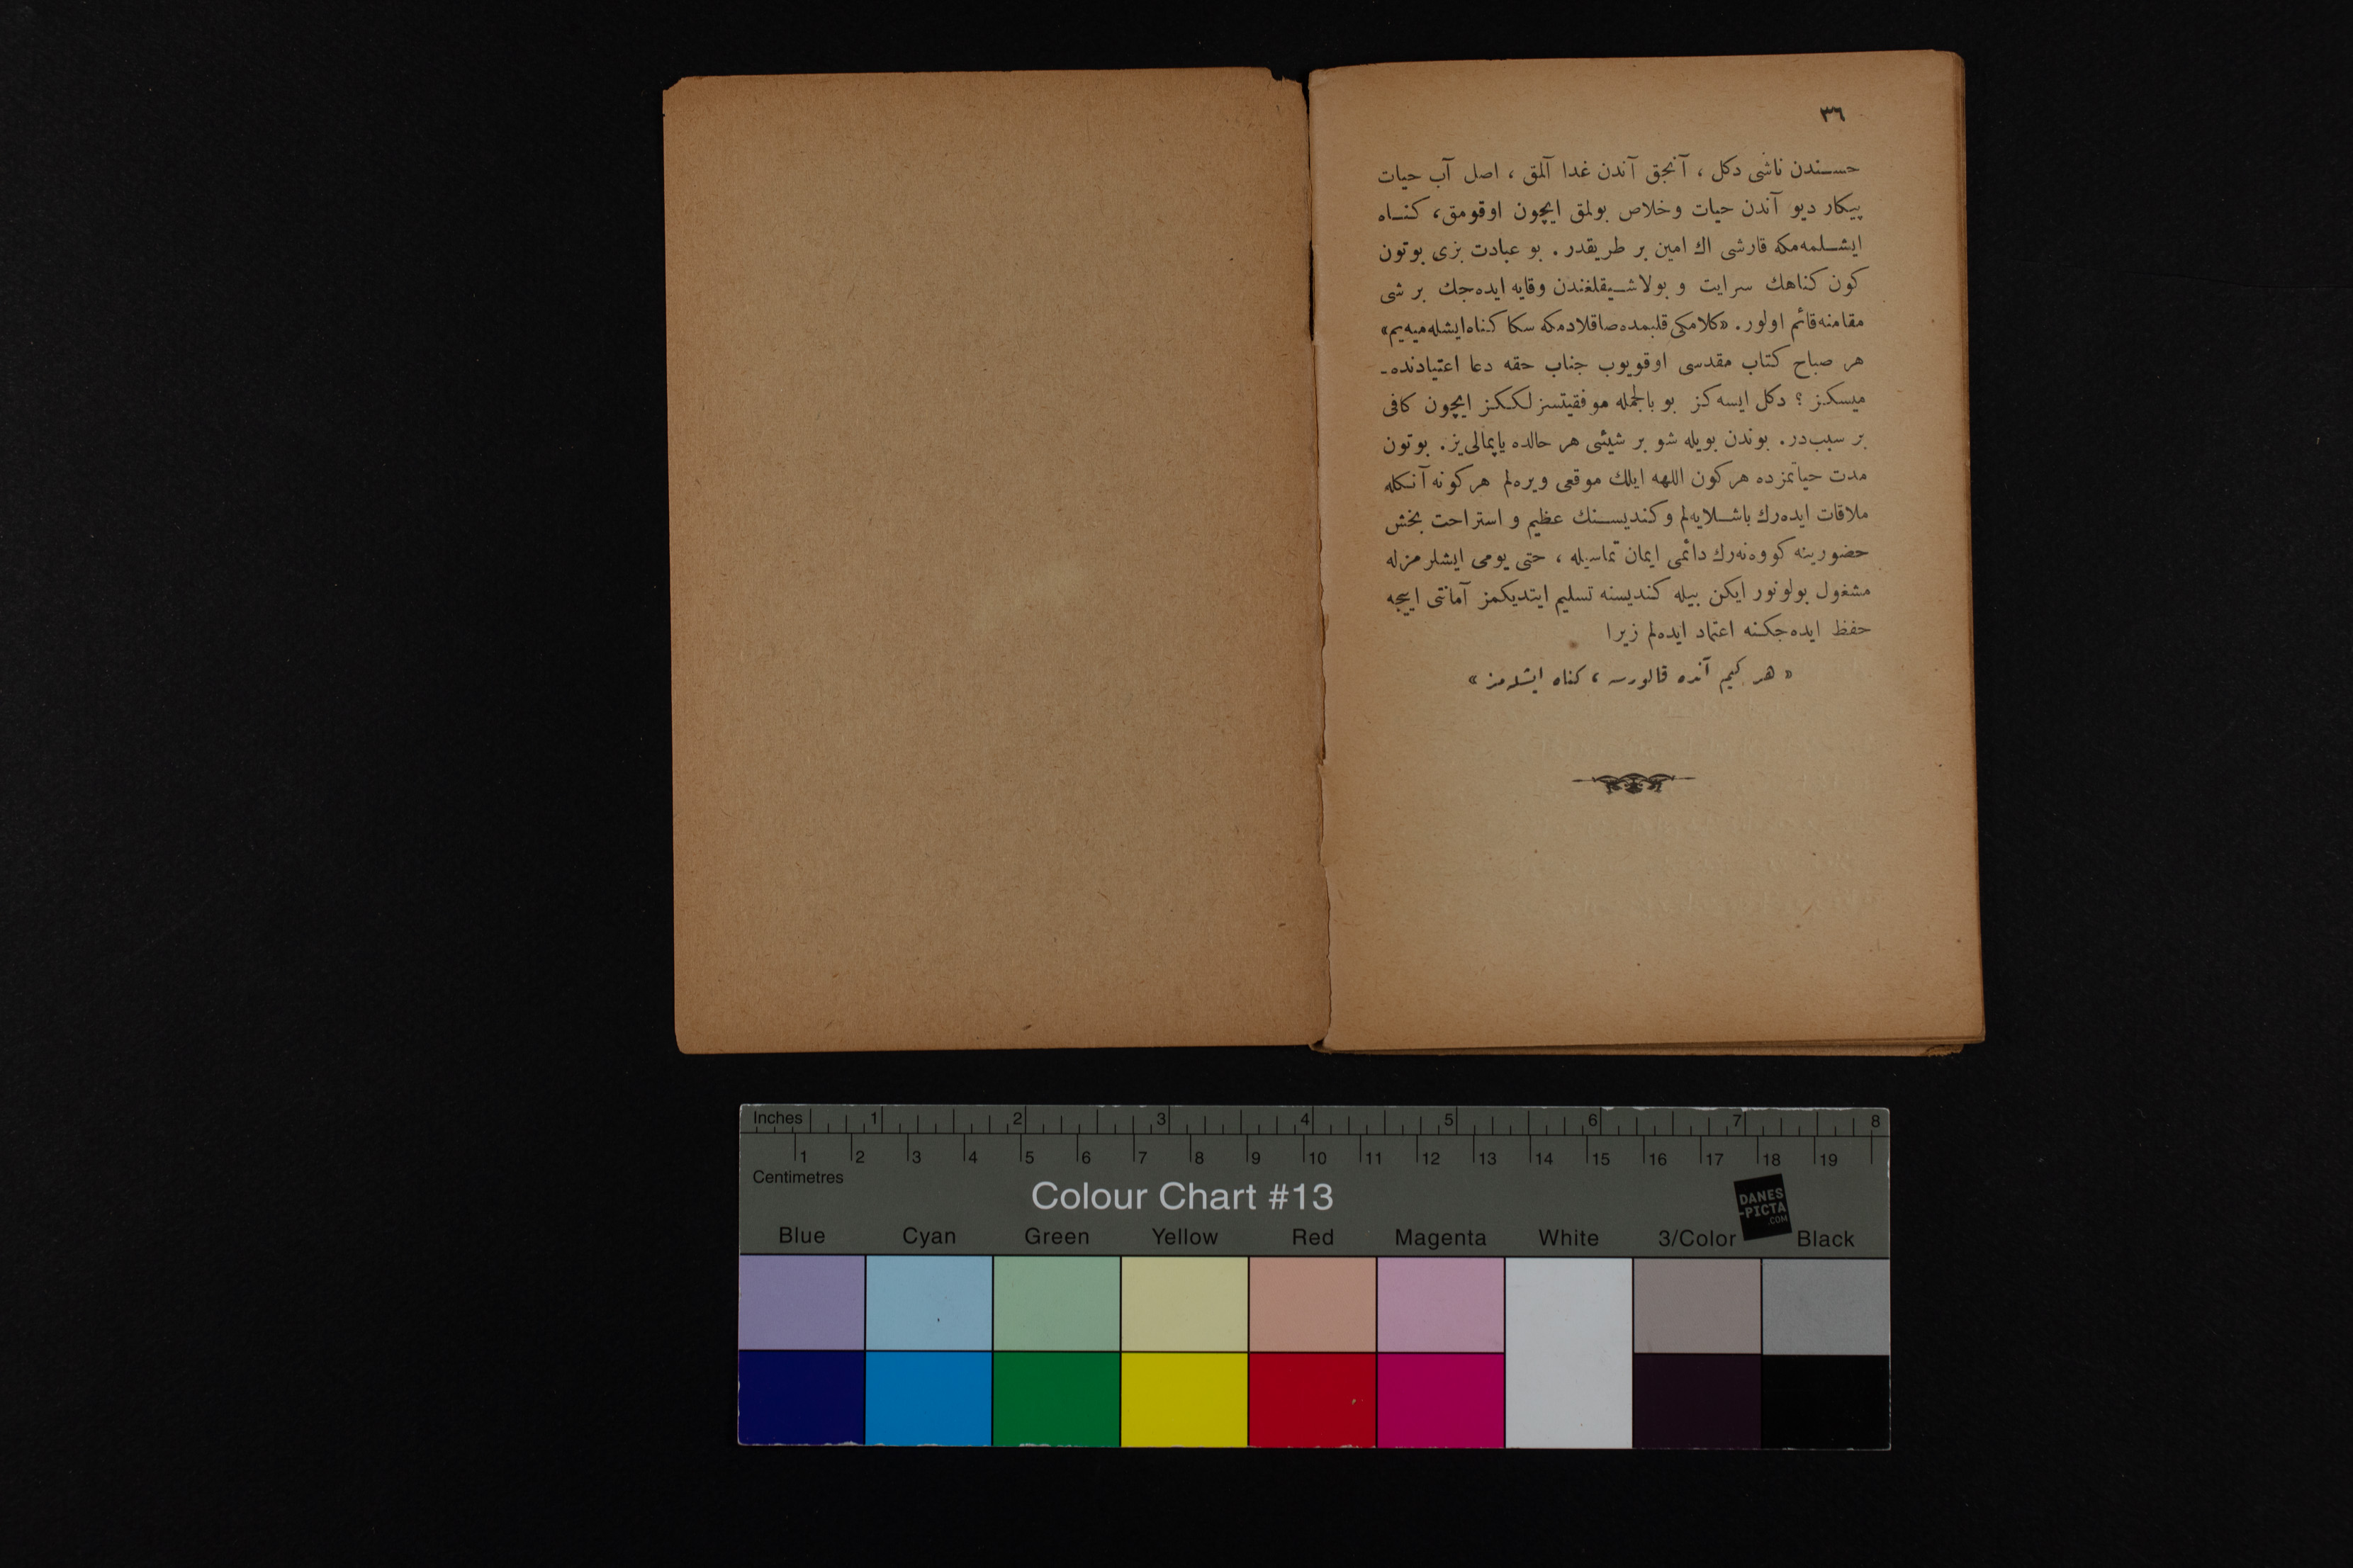 ٣٦
حسندن ناشی دکل ، آنجق آندن غدا آلمق ، اصل آب حیات
پیکار دیو آندن حیات وخلاص بولمق ایچون اوقومق، کناه
ایشلمه‌مکه قارشی اك امین بر طریقدر . بو عبادت بزی بوتون
کون کناهك سرایت و بولاشیقلغندن وقایه ایده‌جك بر شی
مقامنه قائم اولور. «کلامکی قلبمده صاقلادمکه سکا کناه ایشله‌میه‌یم»
هر صباح کتاب مقدسی اوقویوب جناب حقه دعا اعتیادنده-
میسکز ؟ دکل ایسه‌کز بو بالجمله موفقیتسزلککز ایچون کافی
بر سبب‌در. بوندن بویله شو بر شیئی هر حالده یاپمالی‌یز. بوتون
مدت حیاتمزده هرکون اللهه ایلك موقعی ویره‌لم هرکونه آنکله
ملاقات ایده‌رك باشلایه‌لم وکندیسنك عظیم و استراحت بخش
حضورینه کووه‌نه‌رك دائمی ایمان تماسیله ، حتی یومی ایشلرمزله
مشغول بولونور ایکن بیله کندیسنه تسلیم ایتدیکمز آمانتی اییجه
حفظ ایده‌جکنه اعتماد ایده‌لم زیرا
« هر کیم آنده قالورسه ، کناه ایشله‌مز »
Inches 1 2 3 4 5 6 7 8
1 2 3 4 5 6 7 8 9 10 11 12 13 14 15 16 17 18 19
Centimetres
Colour Chart #13
DANES
-PICTA
.COM
Blue Cyan Green Yellow Red Magenta White 3/Color Black